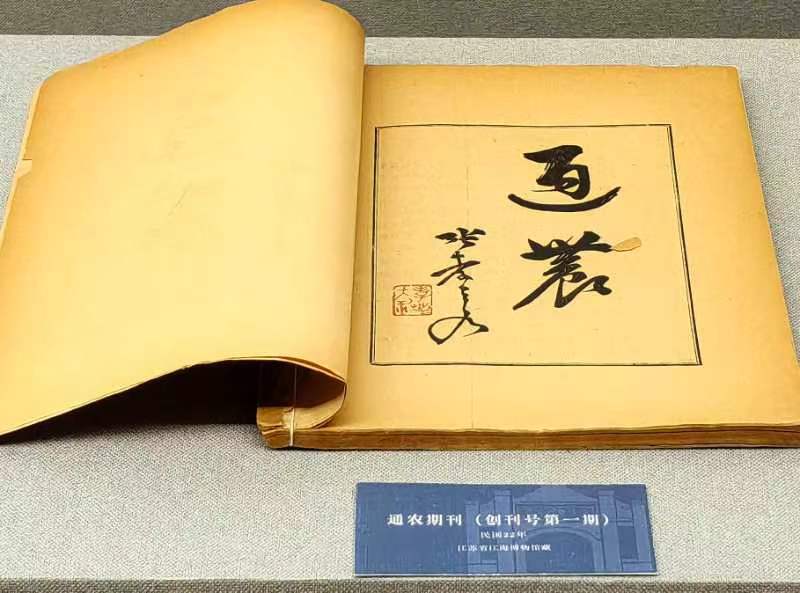 通
農
張孝若
通农期刊（创刊号第一期）
民国22年
江苏省江海博物馆藏